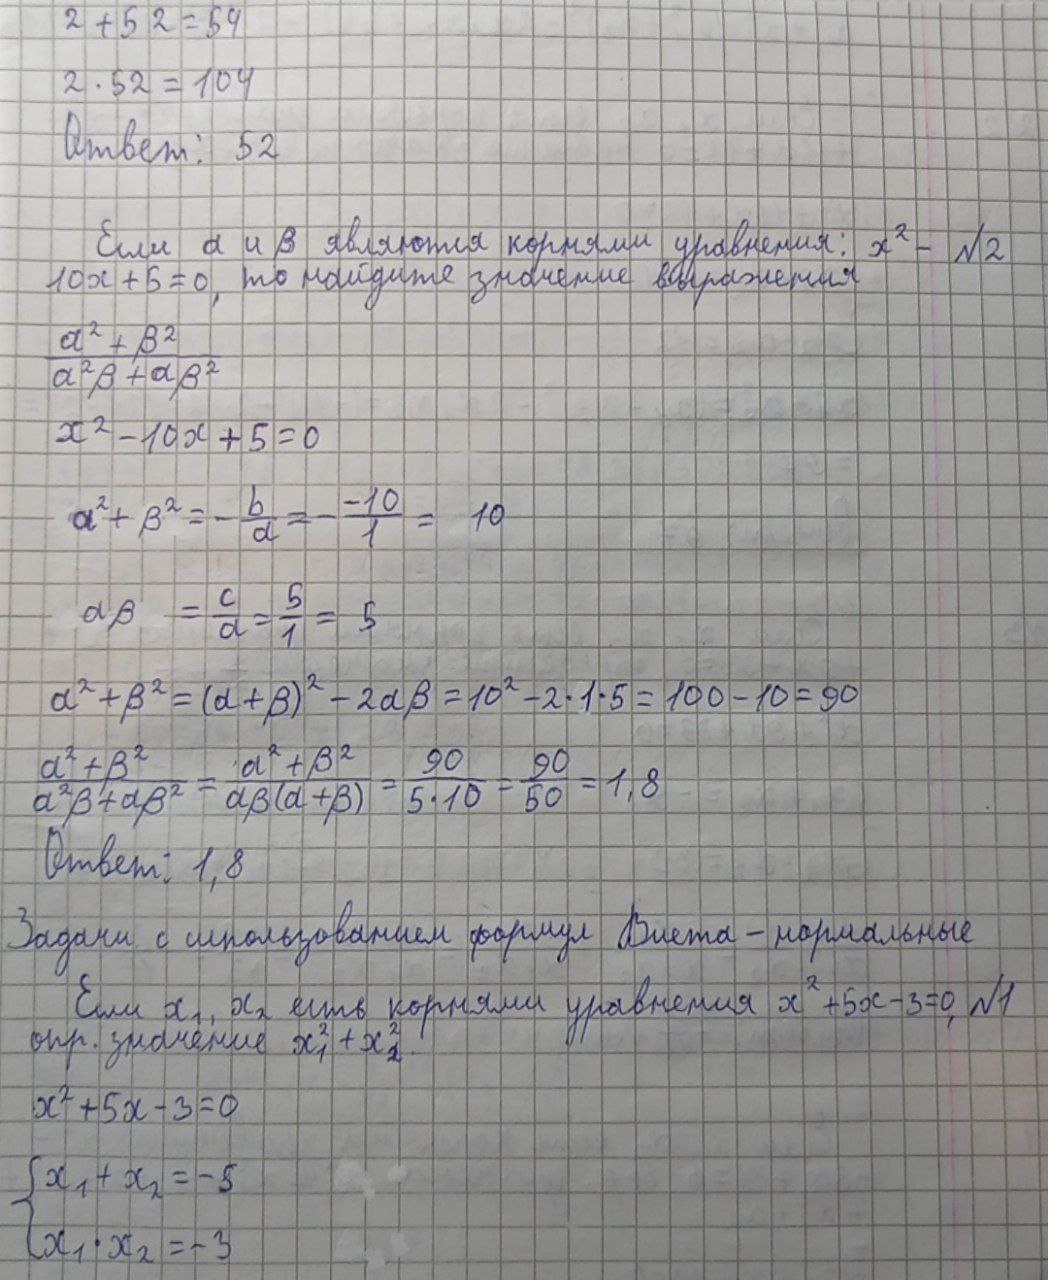 2 + 52 = 54
2 · 52 = 104
Ответ: 52
Если α и β являются корнями уравнения: x² – №2
10x + 5 = 0, то найдите значение выражения
(α² + β²)/(α²β + αβ²)
x² – 10x + 5 = 0
α² + β² = – b/a = – –10/1 = 10
αβ = c/a = 5/1 = 5
α² + β² = (α + β)² – 2αβ = 10² – 2·1·5 = 100 – 10 = 90
(α² + β²)/(α²β + αβ²) = (α² + β²)/(αβ(α + β)) = 90/(5·10) = 90/50 = 1,8
Ответ: 1,8
Задачи с использованием формул Виета – нормальные
Если x₁, x₂ есть корнями уравнения x² + 5x – 3 = 0, №1
опр. значение x₁² + x₂².
x² + 5x – 3 = 0
{x₁ + x₂ = –5
{x₁ · x₂ = –3